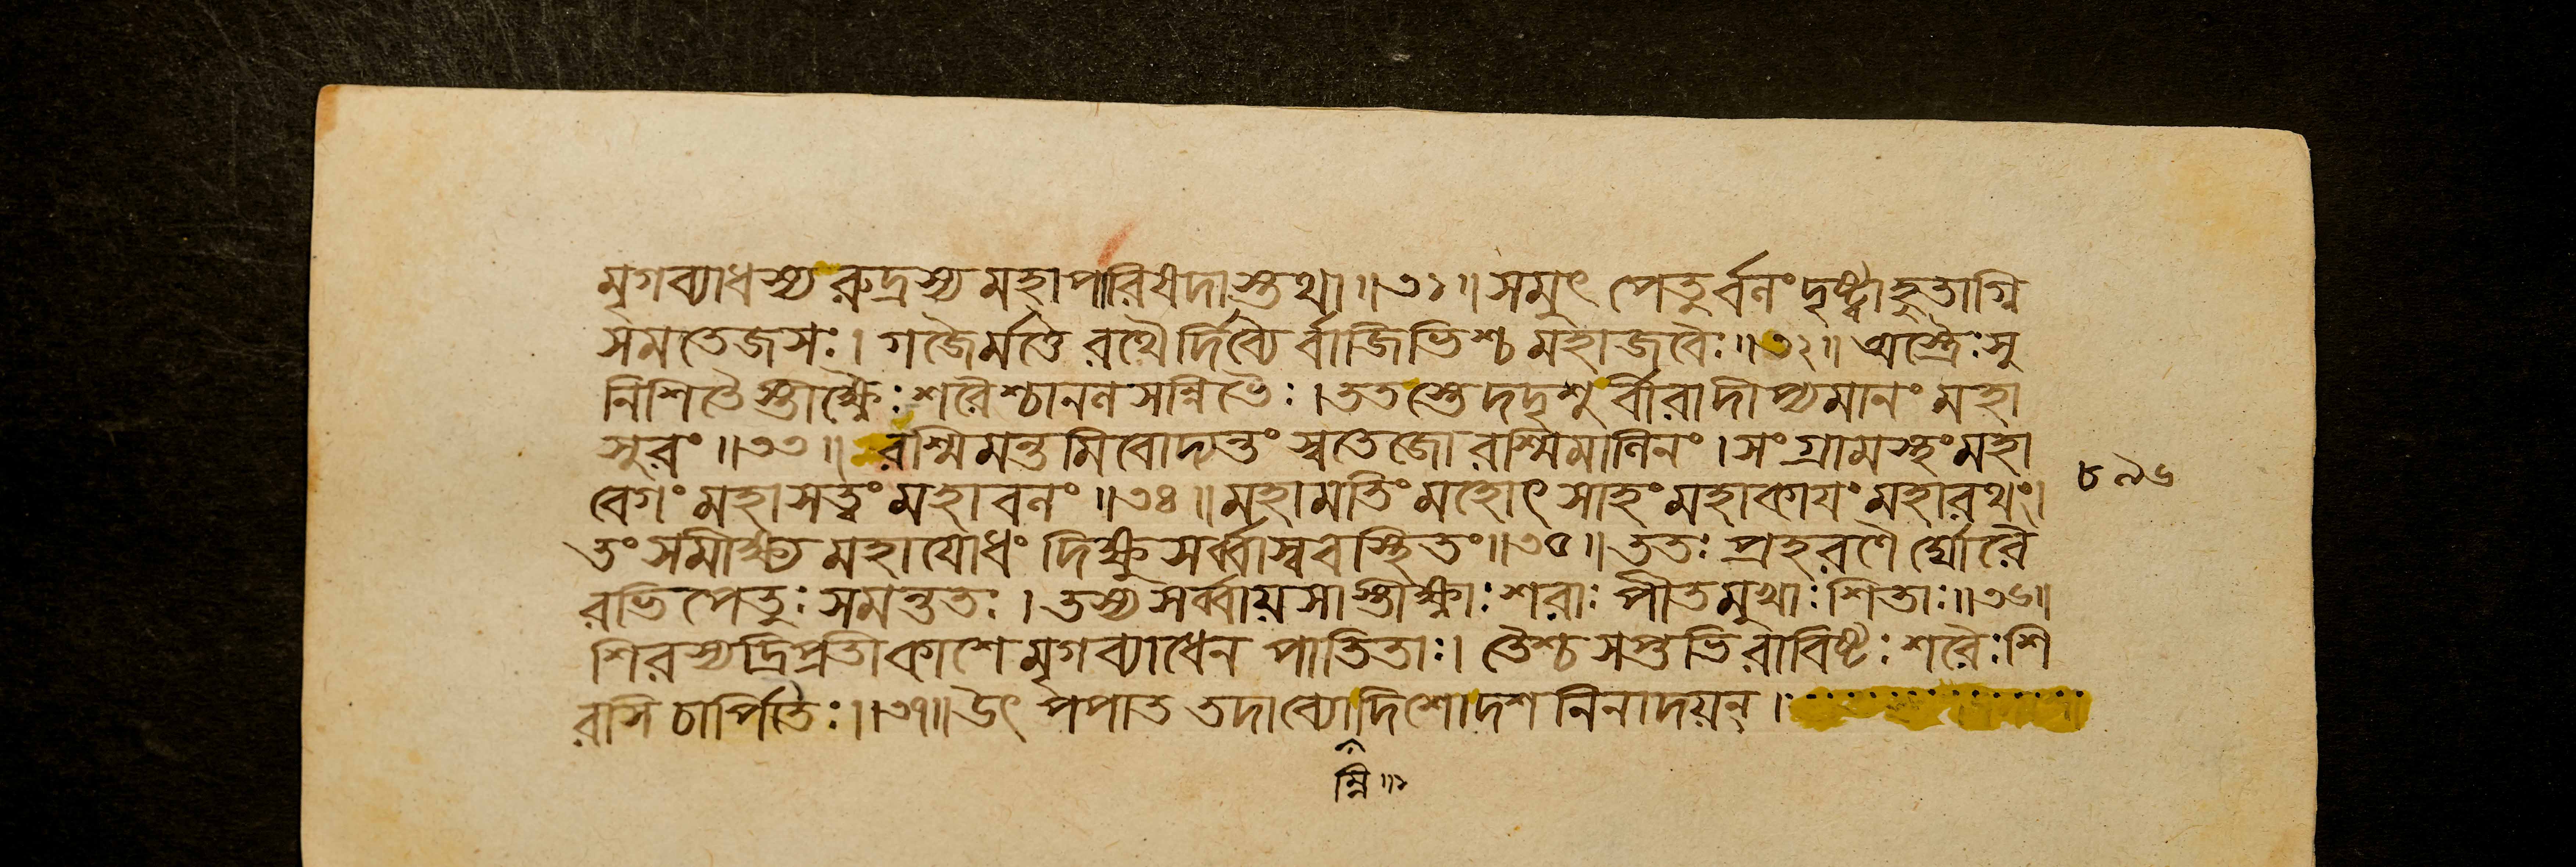 মৃগব্যাধস্য রুদ্রস্য মহাপারিষদাস্তথা॥৩১॥সমুৎ পেতুর্বনং দৃষ্ট্বাহুতাগ্নি
সমতেজসঃ। গজৈর্মত্তৈ রথৈর্দিব্যৈ র্বাজিভিশ্চ মহাজবৈঃ॥৩২॥অস্ত্রৈঃসু
নিশিতৈস্তীক্ষ্ণৈঃশরৈশ্চানলসন্নিভৈঃ।ততস্তেদদৃশুর্বীরাদীপ্যমানং মহা
সুরং॥৩৩॥ রশ্মিমন্তমিবোদ্যন্তং স্বতেজোরশ্মিমালিনং।সংগ্রামস্থংমহা
বেগং মহাসত্ত্বং মহাবলং॥৩৪॥মহামতিং মহোৎ সাহংমহাকায়ং মহারথং।
৮৯৬
তং সমীক্ষ্য মহাযোধং দিক্ষু সর্ব্বাস্ববস্থিতং॥৩৫॥ততঃ প্রহরণৈ র্ঘোরৈ
রভিপেতুঃসমন্ততঃ।তস্যসর্ব্বায়সাস্তীক্ষ্ণাঃশরাঃপীতমুখাঃশিতাঃ॥৩৬॥
শিরস্যদ্রিপ্রতীকাশেমৃগব্যাধেন পাতিতাঃ। তৈশ্চসপ্তভিরাবিষ্টঃশরৈঃশি
রসি চার্পিতৈঃ।৩৭॥উৎ পপাত তদাব্যো দিশোদশ নিনাদয়ন্।
ম্নি॥১